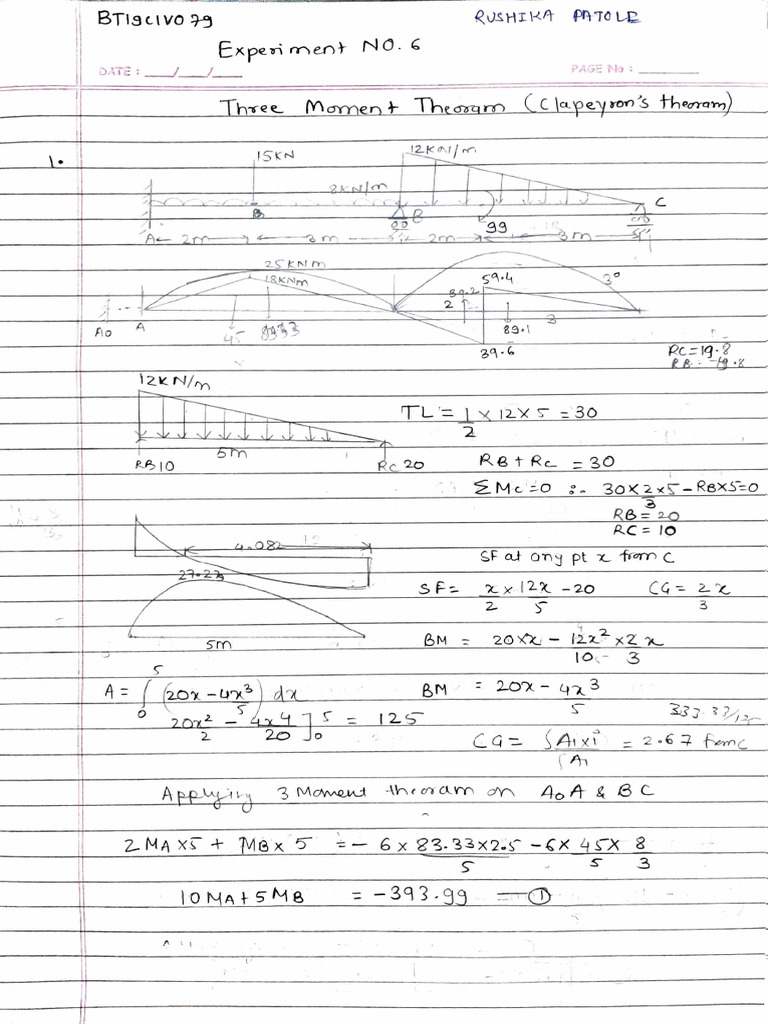 BT19CIV079
RUSHIKA PATOLE
Experiment NO. 6
DATE : ___/___/___
PAGE No : ______
Three Moment Theoram (Clapeyron's theoram)
1.
15KN
12KN/m
8KN/m
B
C
A
2m
3m
2m
99
3m
25KNm
18KNm
59.4
39.2
2
3
A0
A
45
83.33
89.1
39.6
RC=19.8
RB=-19.8
12KN/m
5m
RB10
RC20
TL = 1/2 × 12 × 5 = 30
RB + Rc = 30
ΣMc=0 ∴ 30×2/3×5 - RB×5=0
RB = 20
RC = 10
4.082
SF at any pt x from C
27.22
SF = x/2 × 12x/5 - 20 CG = 2x/3
5m
BM = 20×x - 12x²/10 × 2/3 x
A = ∫₀⁵ (20x - 4x³/5) dx
BM = 20x - 4x³/5
20x²/2 - 4x4/20 ]₀⁵ = 125
333.33/125
CG = ∫A1x1/∫A1 = 2.67 from C
Applying 3 Moment theoram on A0A & BC
2MA×5 + MB×5 = - 6 × 83.33×2.5/5 - 6× 45/5 × 8/3
10MA+5MB = -393.99 — ①